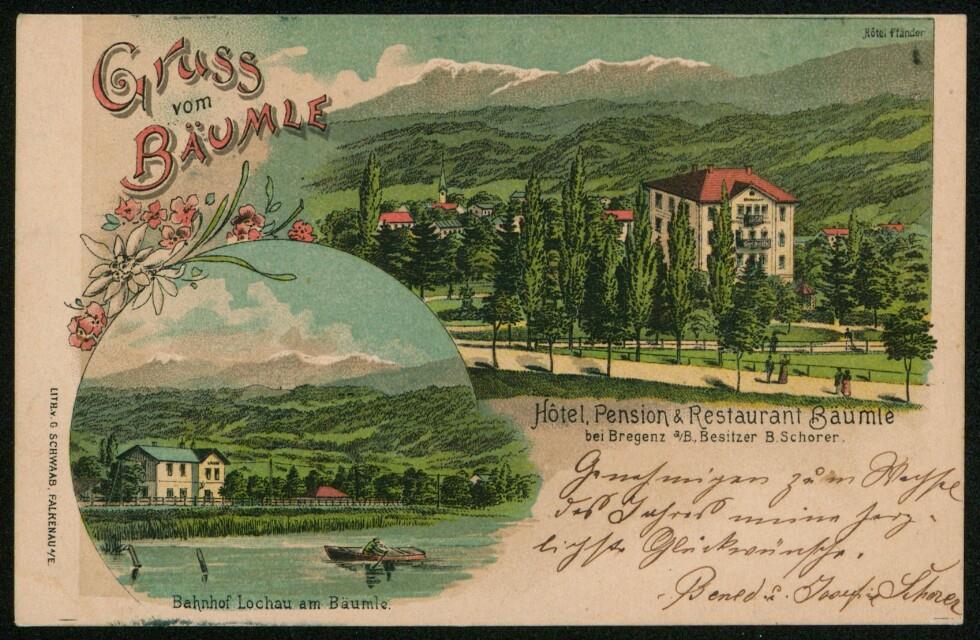 Gruss
vom
BÄUMLE
Hôtel Pfänder
Hôtel, Pension & Restaurant Bäumle
bei Bregenz a/B, Besitzer B. Schorer.
Genehmigen zum Wechsel
des Jahres meine herz-
lichste Glückwünsche.
Bened. u. Josefine Schorer
Bahnhof Lochau am Bäumle.
LITH. v. G. SCHWAAB, FALKENAU a/E.